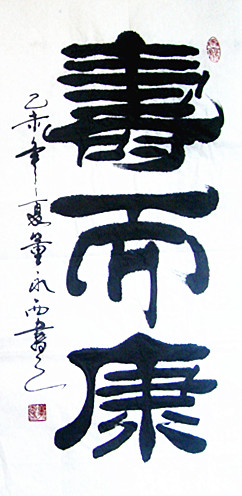 壽而康
乙未年夏量永西書之